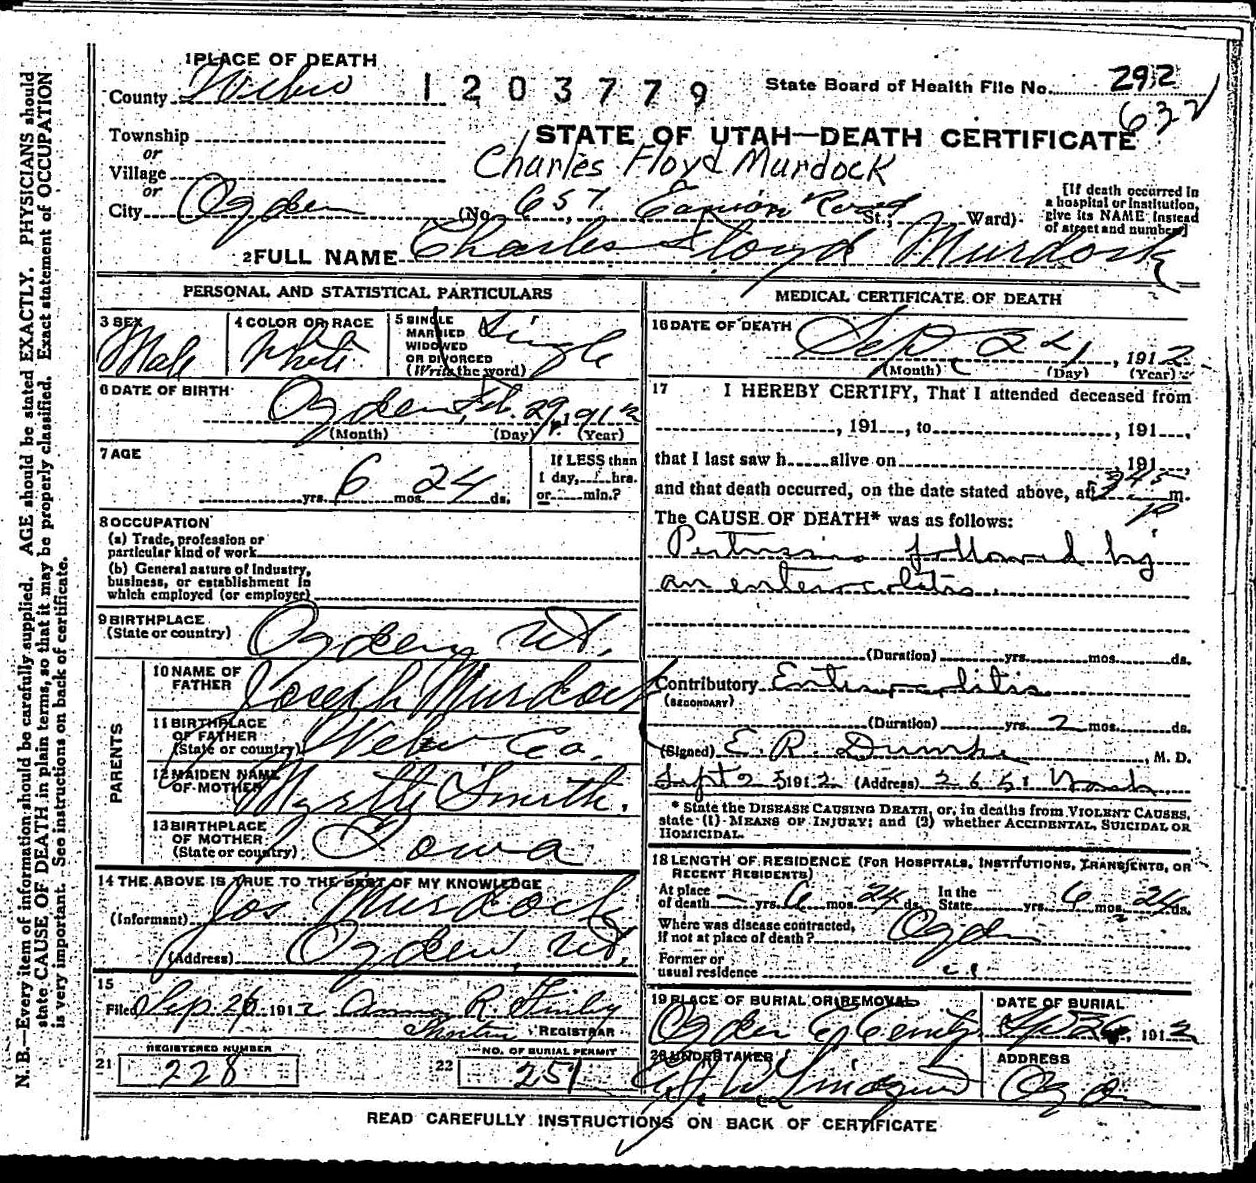 1 PLACE OF DEATH
County Weber
1203779
State Board of Health File No. 292
632
Township
or
Village
or
City Ogden
STATE OF UTAH—DEATH CERTIFICATE
Charles Floyd Murdock
(No. 657 Canyon Road St.; Ward)
[If death occurred in
a hospital or institution,
give its NAME instead
of street and number]
2 FULL NAME Charles Floyd Murdock
PERSONAL AND STATISTICAL PARTICULARS
3 SEX
Male
4 COLOR OR RACE
White
5 SINGLE
MARRIED
WIDOWED
OR DIVORCED
(Write the word)
Single
6 DATE OF BIRTH
Ogden 29, 191
(Month) (Day) (Year)
7 AGE
yrs. 6 mos. 24 ds.
If LESS than
1 day, hrs.
or min.?
8 OCCUPATION
(a) Trade, profession or
particular kind of work
(b) General nature of Industry,
business, or establishment in
which employed (or employer)
9 BIRTHPLACE
(State or country)
Ogden, Ut.
PARENTS
10 NAME OF
FATHER
Joseph Murdock
11 BIRTHPLACE
OF FATHER
(State or country)
Weber Co.
12 MAIDEN NAME
OF MOTHER
Myrtle Smith.
13 BIRTHPLACE
OF MOTHER
(State or country)
Iowa
14 THE ABOVE IS TRUE TO THE BEST OF MY KNOWLEDGE
(Informant) Jos Murdock
(Address) Ogden, Ut.
15
Filed Sep. 26 1912 R. Finley
REGISTRAR
REGISTERED NUMBER
21 228
NO. OF BURIAL PERMIT
22 251
MEDICAL CERTIFICATE OF DEATH
16 DATE OF DEATH
Sep. 24, 1912
(Month) (Day) (Year)
17 I HEREBY CERTIFY, That I attended deceased from
, 191 , to , 191 ,
that I last saw h alive on 191 ,
and that death occurred, on the date stated above, at 345 m.
P
The CAUSE OF DEATH* was as follows:
Pertussis followed by
an enterocolitis.
(Duration) yrs. mos. ds.
Contributory Enterocolitis
(SECONDARY)
(Duration) yrs. 2 mos. ds.
(Signed) E. R. Dumke, M. D.
Sept 25 1912 (Address) 2651 Wash
* State the DISEASE CAUSING DEATH, or, in deaths from VIOLENT CAUSES,
state (1) MEANS OF INJURY; and (2) whether ACCIDENTAL, SUICIDAL OR
HOMICIDAL.
18 LENGTH OF RESIDENCE (FOR HOSPITALS, INSTITUTIONS, TRANSIENTS, OR
RECENT RESIDENTS)
At place
of death — yrs. 6 mos. 24 ds.
In the
State yrs. 6 mos. 24 ds.
Where was disease contracted,
if not at place of death? Ogden
Former or
usual residence "
19 PLACE OF BURIAL OR REMOVAL
Ogden Cemetery
DATE OF BURIAL
Sep 26, 1912
20 UNDERTAKER
Lindquist
ADDRESS
Ogden
READ CAREFULLY INSTRUCTIONS ON BACK OF CERTIFICATE
N. B.—Every item of information should be carefully supplied. AGE should be stated EXACTLY. PHYSICIANS should
state CAUSE OF DEATH in plain terms, so that it may be properly classified. Exact statement of OCCUPATION
is very important. See instructions on back of certificate.